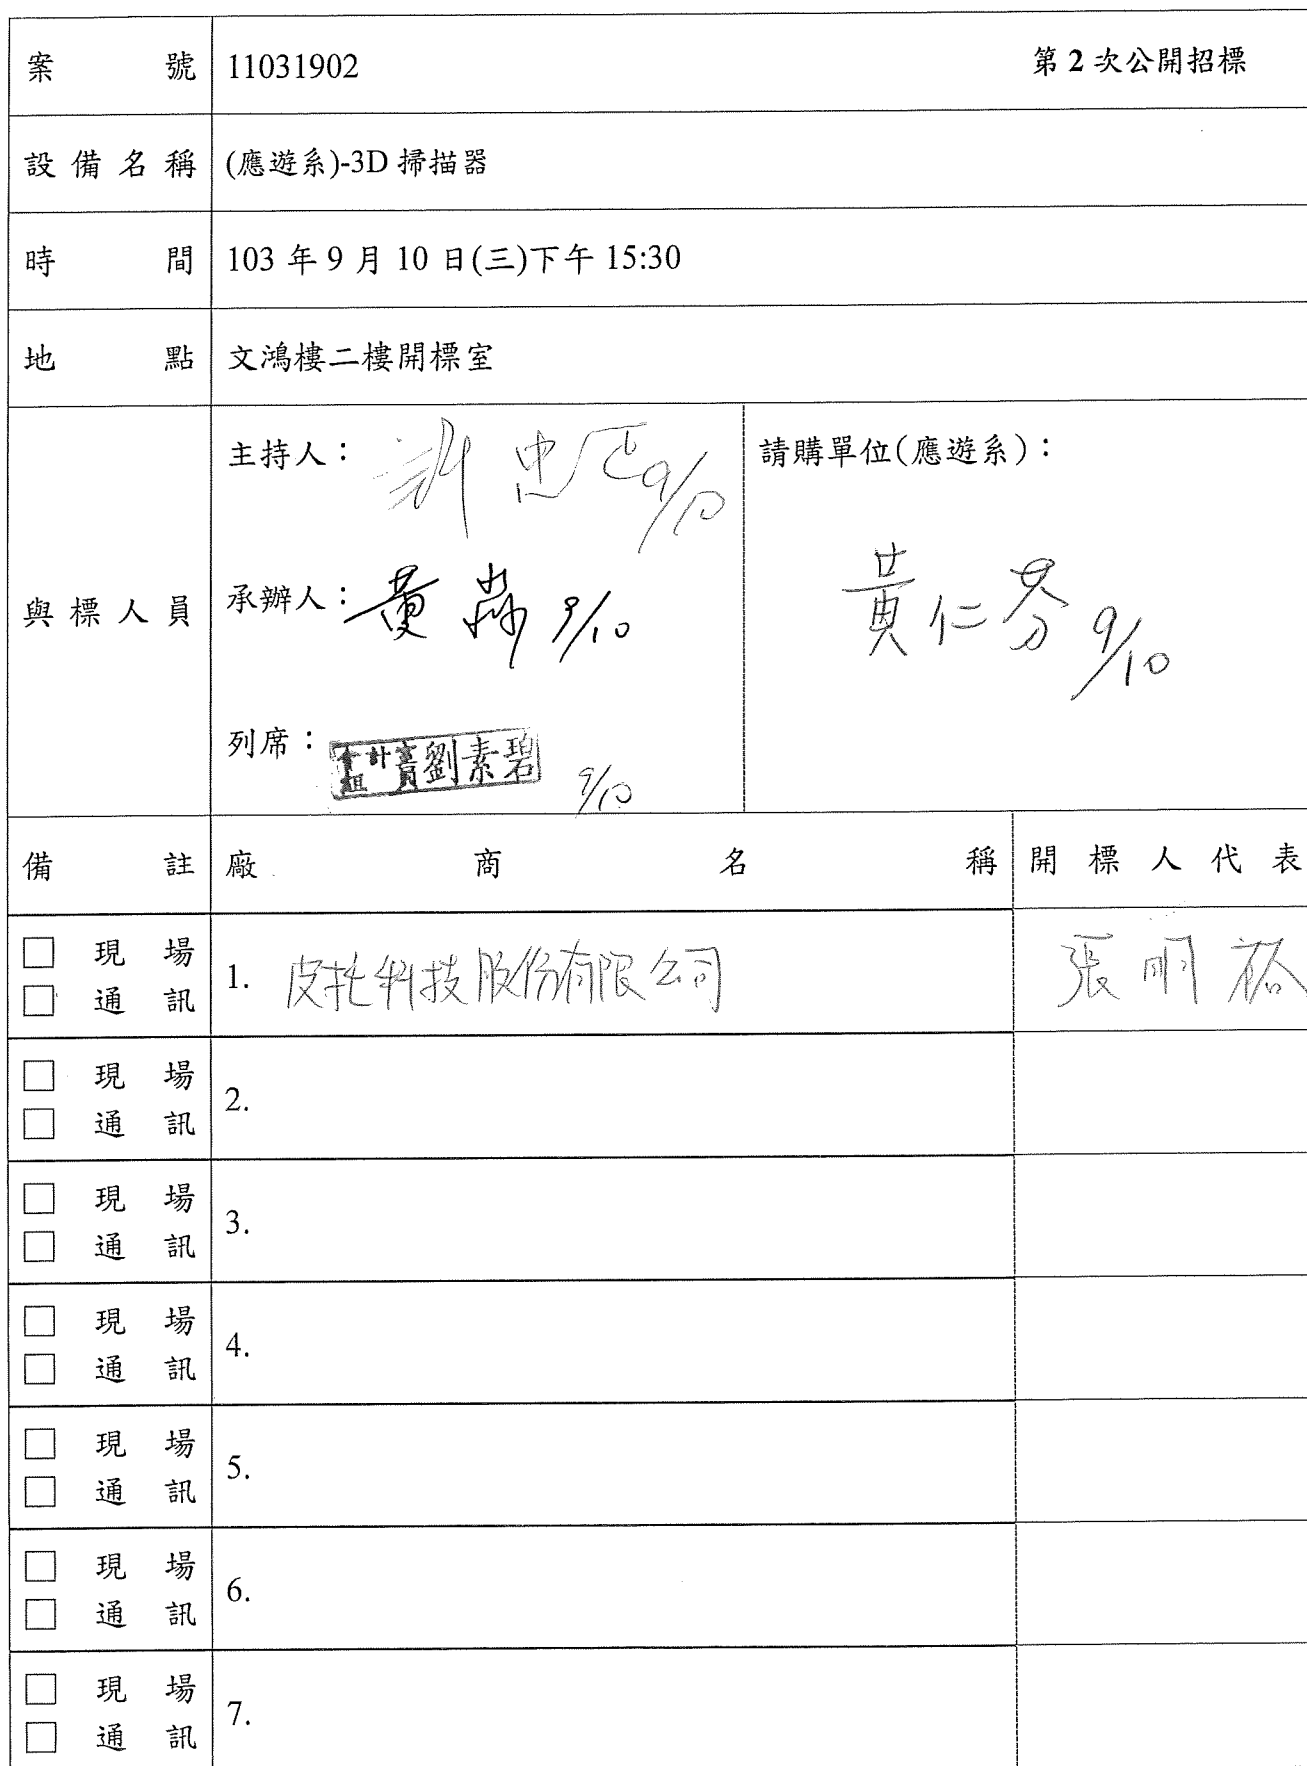 案號 11031902 第2次公開招標
設備名稱 (應遊系)-3D掃描器
時間 103年9月10日(三)下午15:30
地點 文鴻樓二樓開標室
與標人員
主持人: 許忠 9/10
承辦人: 黃 9/10
列席: 會計組 劉素碧 9/10
請購單位(應遊系):
黃仁芬 9/10
備註 廠商名稱 開標人代表
□ 現場
□ 通訊
1. 皮托科技股份有限公司 張明裕
□ 現場
□ 通訊
2.
□ 現場
□ 通訊
3.
□ 現場
□ 通訊
4.
□ 現場
□ 通訊
5.
□ 現場
□ 通訊
6.
□ 現場
□ 通訊
7.